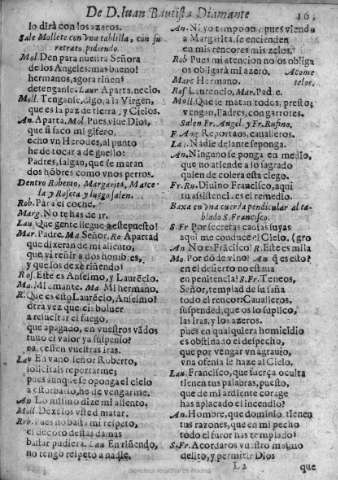 De D. Iuan Bautista Diamante
lo dirà con los azeros.
Sale Mollete con vna tablilla, con su
retrato, pidiendo.
Mol. Den para nuestra Señora
de los Angeles: mas bueno!
hermanos, agora riñen?
detenganse. Laur. Aparta, necio.
Moll. Tenganse, digo, a la Virgen,
que es la paz de la tierra, y Cielos.
An. Aparta, Mol. Pues viue Dios,
que si saco mi
echo vn Herodes, al punto
he de tocar a de guello.
Padres, salgan, que se matan
dos hòbres como vnos perros.
Dentro Roberto, Margarita, Marce-
la y Roseta y luego salen.
Rob. Parà el coche.
Marg. No te has de ir.
Lau. Que gente llegue a este puesto!
Mar. Padre. Ma Señor. Ro Apartad
que dizeren de mi aliento,
que vi reñir a dos hombres,
y que los dexè riñendo!
Ros. Este es Anselmo, y Laurècio.
Ma. Mi amante. Ma. Mi hermano.
R. Que es esto Laurècio, Anselmo?
otra vez que: is boluer
a reluzir el fuego,
que apagado, en vuestros vádos
tuuo el valor ya suspenso?
ea, cessen vuestras iras.
Lau En vano señor Roberto,
solicitais reportarme;
pues aunque se oponga el cielo
a estorbarlo, he de vengarme.
An Lo mismo dize mi aliento.
Moll. Dexelos vsted matar.
Rob. Pues no basta mi respeto,
el decoro destas damas
bastar pudiera. Lau En riñendo,
no tengo respeto a nadie.
An. Ni yo tampoco; pues viendo
a Margarita, se encienden
en mis rencores mis zelos.
Rob Pues mi atencion no os obliga
os obligarà mi azero. Acome
Marc Hermano. telos.
Ros Laurencio, Mar. Padre.
Moll. Que se matan todos, presto;
vengan, Padres, con garrotes.
Salen Fr. Angel, y Fr. Rufino.
F. Ang Reportaos, caualleros.
La. Nadie delante se ponga.
An. Ninguno se ponga en medio,
que no atiende a lo sagrado
quien de colera està ciego.
Fr. Ru. Diuino Francisco, aqui
tu assistencia es el remedio.
Baxa en vna cuerda pendicular al ta-
blado S. Francisco.
S Fr Por secretas causas suyas
aqui me conduce el Cielo. (gro
An No es Fràcisco? R Este es mila
Mo. Por dò de vino? An què es esto?
en el desierto no estaua
en penitencia? S. Fr. Teneos,
Señor, templad de su saña
todo el rencor: Caualleros,
suspended, que os lo suplico,
las iras, y los azeros.
pues en qualquiera homicidio
es obstinado el despecho,
que por vengar vn agrauio,
vna ofensa le haze al Cielo.
Lau. Francisco, que fuerça oculta
tienen tus palabras, puesto,
que de mi ardiente corage
has aplacado el incendio?
An. Hombre, que dominio tienen
tus razones, que en mi pecho
todo el furor has templado?
S Fr. Acordaros vuestro mismo
delito, y permitir Dios
L2 que